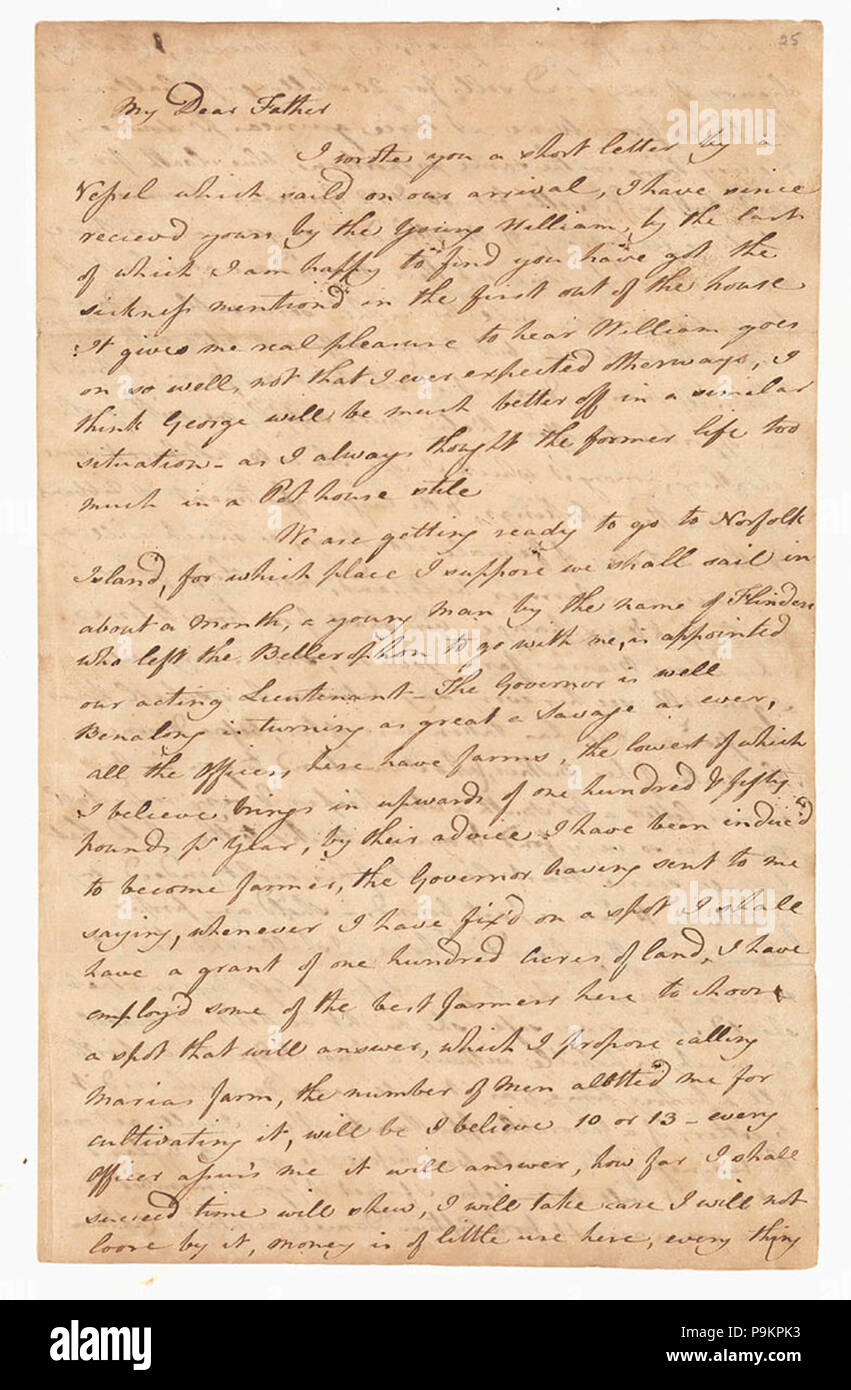 25
My Dear Father
I wrote you a short letter by a
Vessel which saild on our arrival, I have since
recievd yours by the Young William, by the last
of which I am happy to find you have got the
sickness mention'd in the first out of the house
It gives me real pleasure to hear William goes
on so well, not that I ever expected otherways, I
think George will be much better off in a similar
situation - as I always thought the former life too
much in a Pot house stile
We are getting ready to go to Norfolk
Island, for which place I suppose we shall sail in
about a Month, a young man by the name of Flinders
who left the Bellerophon to go with me, is appointed
our acting Lieutenant - The Governor is well
Benalong is turning as great a Savage as ever,
all the Officers here have farms, the lowest of which
I believe brings in upwards of one hundred & fifty
pounds pr Year, by their advice I have been induc'd
to become farmer, the Governor having sent to me
saying, whenever I have fix'd on a spot I shall
have a grant of one hundred Acres of land, I have
employ'd some of the best farmers here to choose
a spot that will answer, which I propose calling
Marias farm, the number of Men allotted me for
cultivating it, will be I believe 10 or 13 - every
Officer assur's me it will answer, how far I shall
succeed time will shew, I will take care I will not
loose by it, money is of little use here, every thing
alamy
Image ID: P9KPK3
www.alamy.com